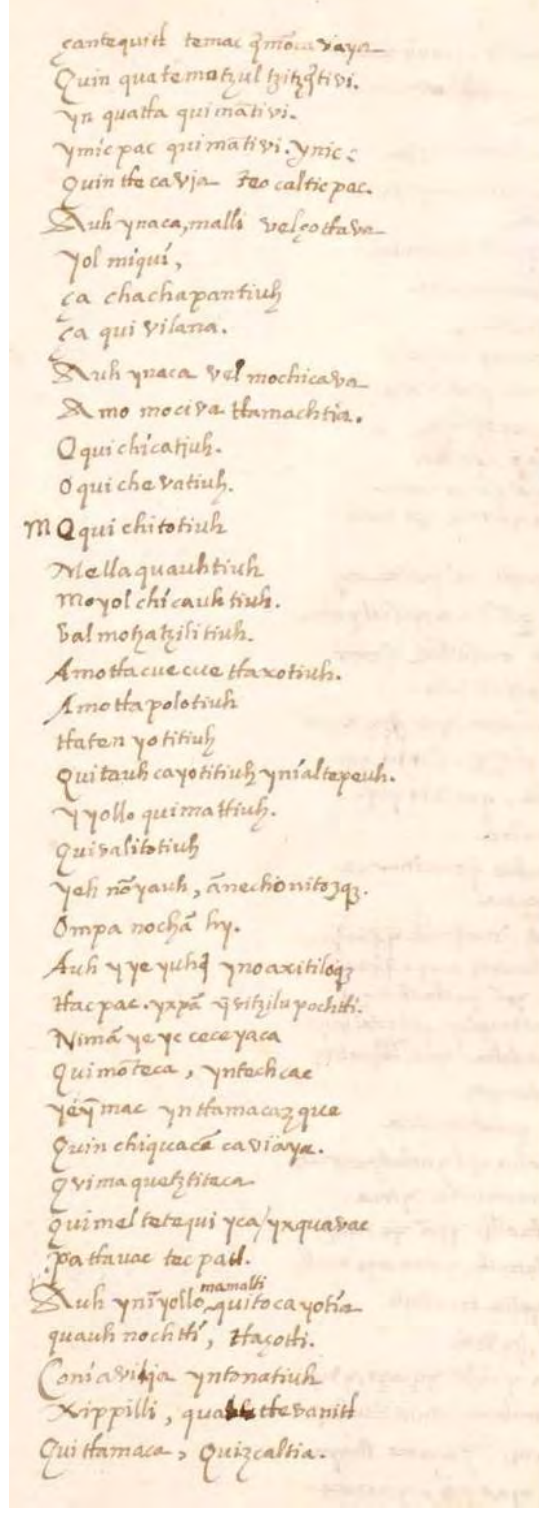 çantequitl temac q̃mõcavaya
Quin quatemotzul tzitzq̃tivi.
yn quatla quimãtivi.
ymicpac quimãtivi. ynic
Quin tlecavia teocalticpac.
Auh ynaca, malli velçotlava
yolmiqui,
ça chachapantiuh
ça quivilana.
Auh ynaca vel mochicava
Amo mociva tlamachtia.
Oquichicatiuh.
Oquichevatiuh.
M Oquichitotiuh
Mellaquauhtiuh
Moyolchicauhtiuh.
valmotzatzilitiuh.
Amo tlacuecuetlaxotiuh.
Amo tlapolotiuh
tlatenyotitiuh
Quitauhcayotitiuh ynialtepeuh.
yyollo quimattiuh.
Quivalitotiuh
yeh nõyauh, ãnechonitozq̃.
Ompa nochã hy.
Auh yyeyuhq̃ ynoaxitiloq̃
tlacpac. yxpã ỹvitzilupochtli.
Nimã ye yc ceceyaca
Quimõteca, yntechcac
yéỹmac yntlamacazque
Quin chiquacẽ caviaya.
Quimaquetztiteca
Quimeltetequi yca, yxquavac
patlavac tecpatl.
Auh ynĩyollo mamalti quitocayotia
quauhnochtli, tlaçotli.
Coniavilia yntonatiuh
Xippilli, quauhtlevanitl
Quitlamaca, Quizcaltia.